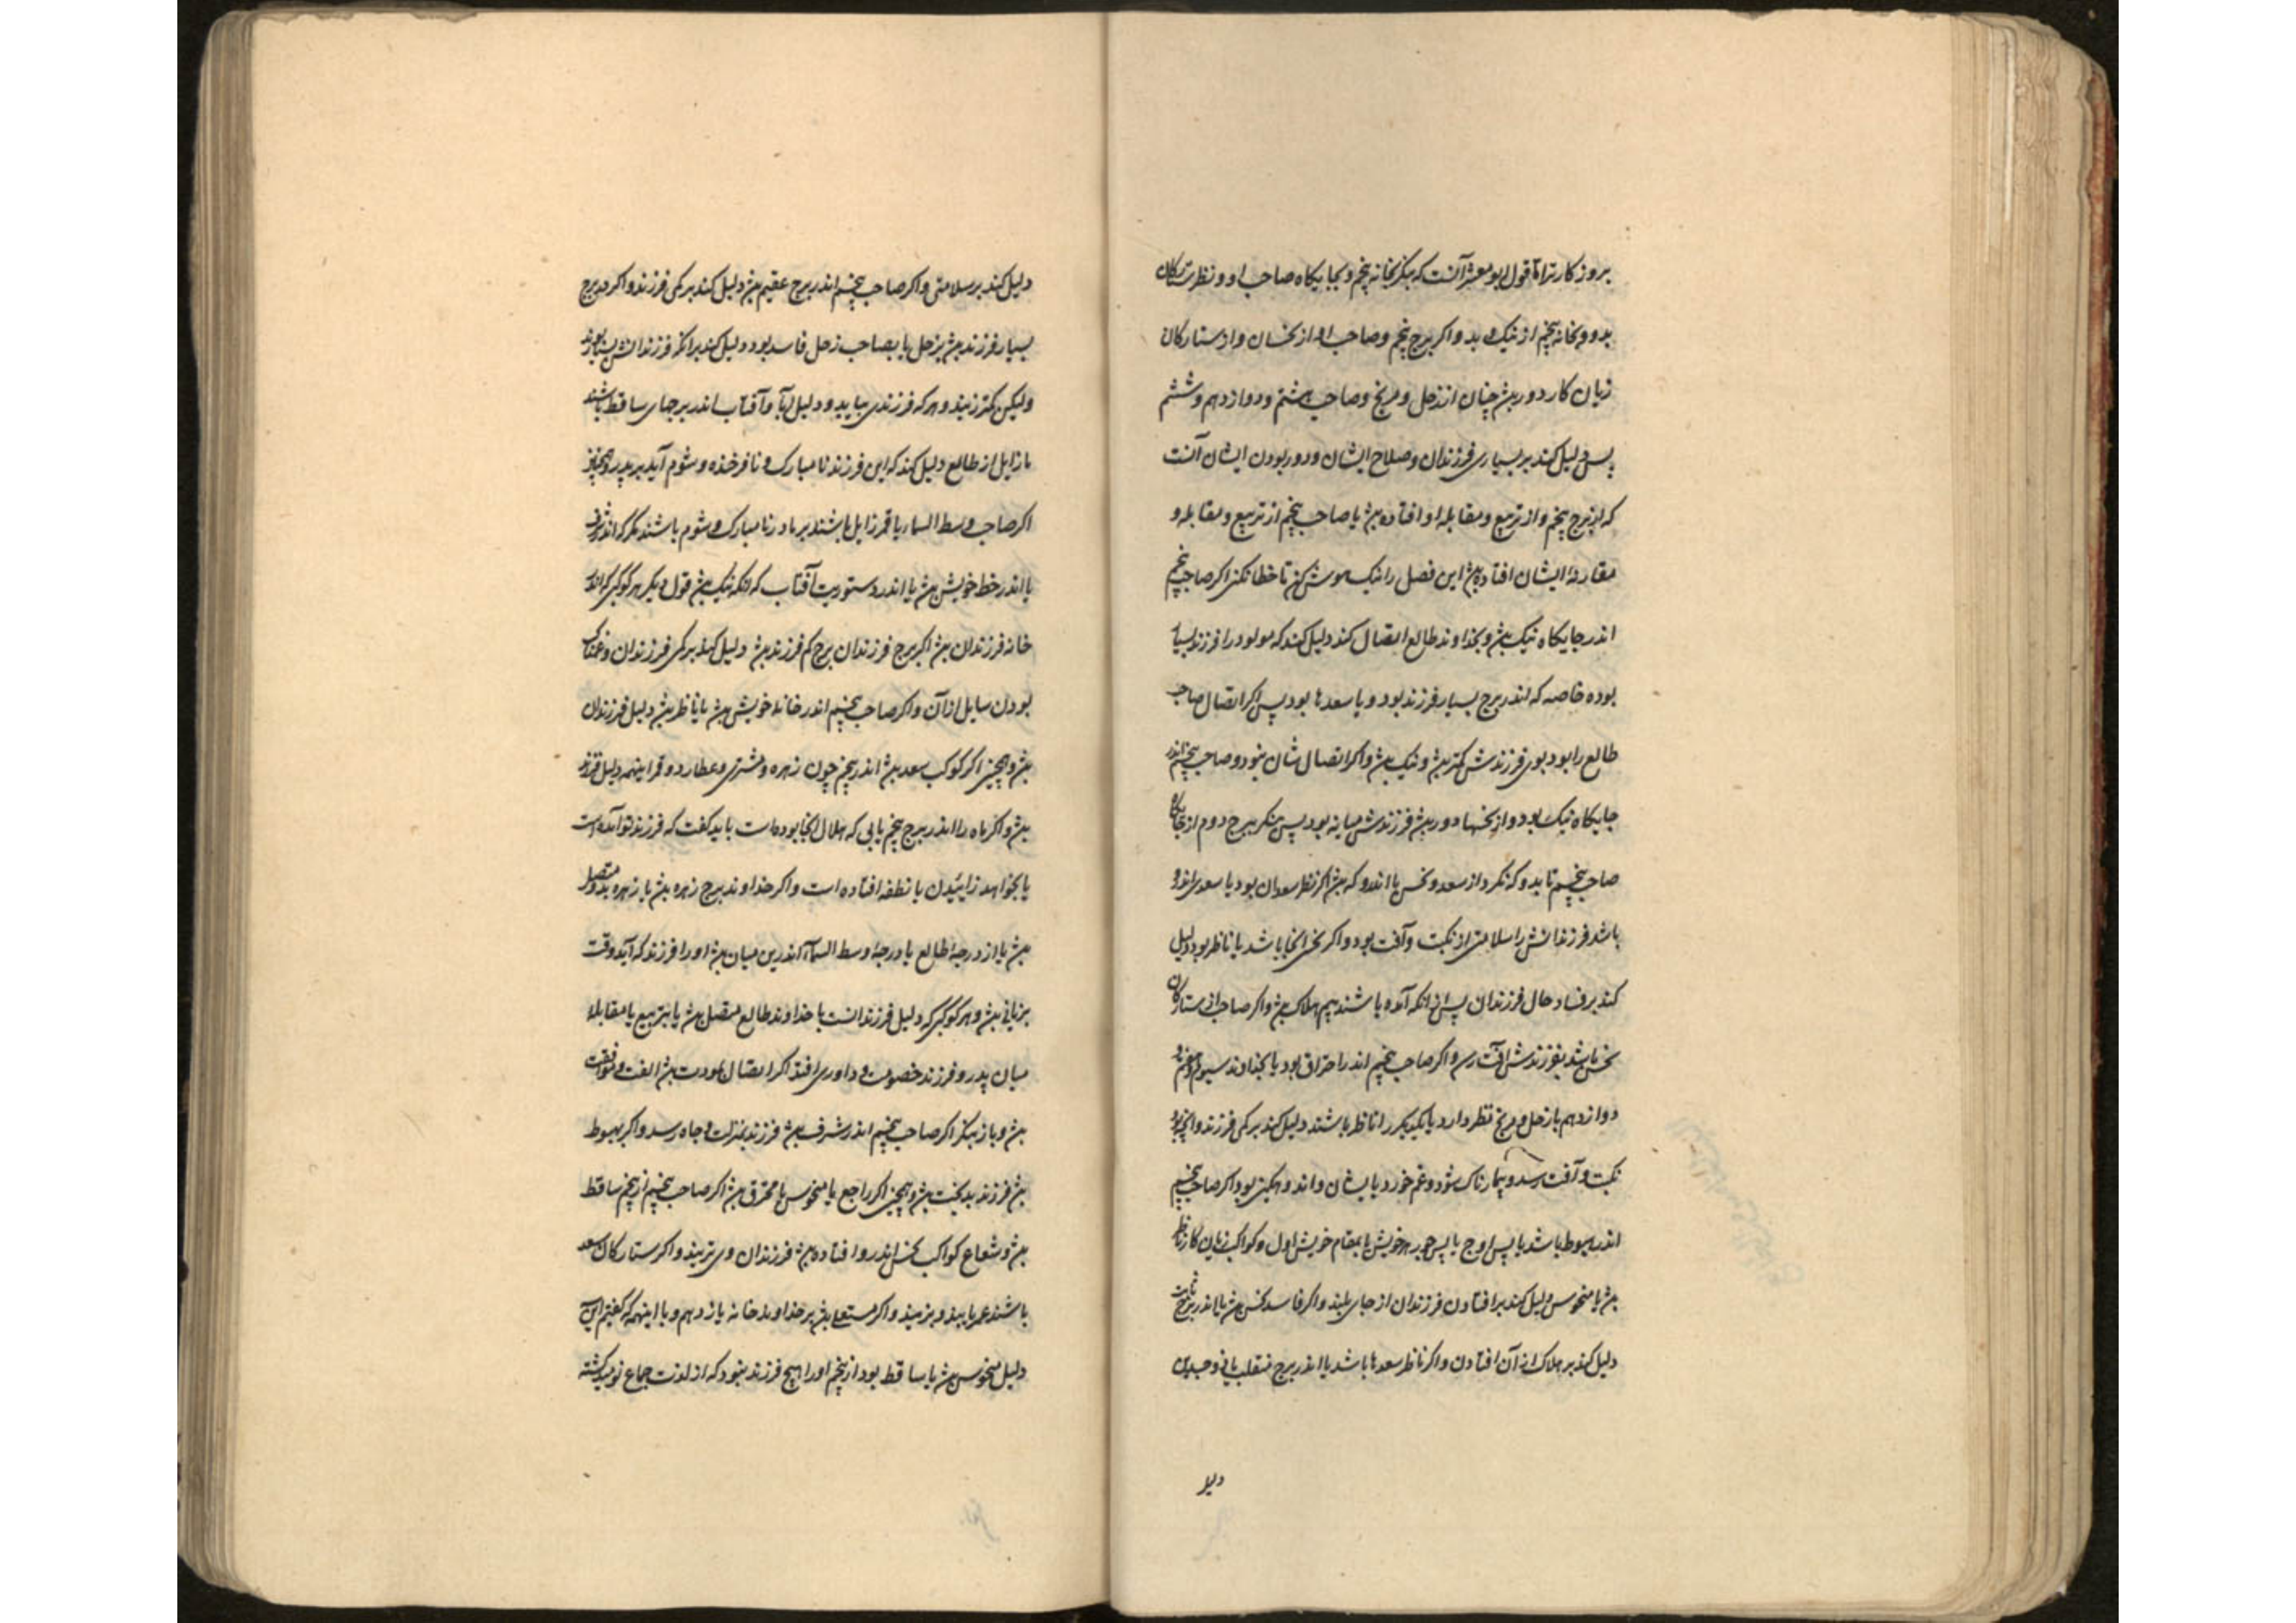 بروز کار تر اما قول ابو معشر آنست که بنگر بخانه پنجم و بجایگاه صاحب او و نظر ستارکان
بدو و بخانه پنجم از نیک و بد و اکر برج پنجم و صاحب او از نحسان و از ستارکان
زیان کار دور بود چنان از زحل و مریخ و صاحب هشتم و دوازدهم و ششم
پس دلیل کند بر بسیاری فرزندان و صلاح ایشان و دور بودن ایشان آنست
که از برج پنجم و از تربیع و مقابله او افتاده بود یا صاحب پنجم از تربیع و مقابله و
مقارنه ایشان افتاده بود این فصل را نیک هوش کن تا خطا نکنی اکر صاحب پنجم
اندر جایکاه نیک بود و بخداوند طالع اتصال کند دلیل کند که مولود را فرزند بسیار
بوده خاصه که اندر برج بسیار فرزند بود و با سعدها بود پس اکر اتصال صاحب
طالع را بود بوی فرزندش کمتر بود و نیک بود و اکر اتصال شان نبود و صاحب پنجم اندر
جایکاه نیک بود و از نحسها دور بود فرزندش میانه بود پس بنکر ببرج دوم از جایکاه
صاحب پنجم تا بدو که نکرد از سعد و نحس یا اندرو که بود اکر نظر سعدان بود یا سعدی اندرو
باشد فرزندانش را سلامتی از نکبت و آفت بود و اکر نحس آنجا باشد یا ناظر بود دلیل
کند بر فساد حال فرزندان پس از آنکه آمده باشند بیم هلاک بود و اکر صاحب از ستارکان
نحس باشد بفرزندش آفت رسد و اکر صاحب پنجم اندر احتراق بود یا بخداوند سیوم و هفتم و
دوازدهم یا زحل و مریخ نظر دارد یا یکدیکر را ناظر باشند دلیل کند بر کمی فرزند و آنچه بود
نکبت و آفت رسد و بیمارناک شود و غم خورد بایشان و اندوهکین بود اکر صاحب پنجم
اندر هبوط باشد یا پس اوج یا پس جوزهر خویش یا بمقام خویش اول و کواکب زیان کار ناظر
بود یا منحوس دلیل کند بر افتادن فرزندان از جای بلند و اکر فاسد کننده نحس بود یا اندر برج ثابت
دلیل کند بر هلاک از آن افتادن و اکر ناظر سعدها باشد یا اندر برج منقلب یا ذو جسدین
دلیل
دلیل کند بر سلامتی و اکر صاحب پنجم اندر برج عقیم بود دلیل کند بر کمی فرزند و اکر در برج
بسیار فرزند بود بزحل یا بصاحب زحل فاسد بود دلیل کند بر آنکه فرزندانش بسیار بوند
ولیکن کمتر زیند و هر که فرزندی بیابد و دلیل آبا و آفتاب اندر برجهای ساقط باشند
یا زایل از طالع دلیل کند که این فرزند نا مبارک و نا فرخنده و شوم آید بر پدر و همچنین
اکر صاحب وسط السماء یا قمر زایل باشند بر مادر نا مبارک و شوم باشند مکر که اندر شرف
یا اندر خط خویش بود یا اندر دستوریت آفتاب که آنکه نیک بود قول دیکر هر کوکبی که اندر
خانه فرزندان بود اکر برج فرزندان برج کم فرزند بود دلیل کند بر کمی فرزندان و غمناک
بودن سایل از آن و اکر صاحب پنجم اندر خانه خویش بود یا ناظر بود دلیل فرزندان
بود و همچنین اکر کوکب سعد بود اندر پنجم چون زهره و مشتری و عطارد و قمر اینهمه دلیل فرزند
بود و اکر ماه را اندر برج پنجم یابی که هلال آنجا بوده است باید کفت که فرزند تو آمده است
یا بخواهد زاییدن یا نطفه افتاده است و اکر خداوند برج زهره بود یا زهره بدو متصل
بود یا از درجه طالع یا درجه وسط السماء اندرین میان بود او را فرزند که آید وقت
بزیانی بود و هر کوکبی که دلیل فرزندانست با خداوند طالع متصل بود یا بتربیع یا مقابله
میان پدر و فرزند خصومت و داوری افتد اکر اتصال مودت بود الفت و موافقت
بود و باز بنکر اکر صاحب پنجم اندر شرف بود فرزند بمنزلت و جاه رسد و اکر بهبوط
بود فرزند بدبخت بود و همچنین اکر راجع یا منحوس یا محترق بود اکر صاحب پنجم از پنجم ساقط
بود و شعاع کواکب نحس اندرو افتاده بود فرزندان وی نزیند و اکر ستارکان سعد
باشند عمر یابند و بزیند و اکر مستعلی بود بر خداوند خانه یازدهم و با اینهمه که کفتم این
دلیل منحوس بود یا ساقط بود از پنجم او را هیچ فرزند نبود که از لذت جماع نومید کشته